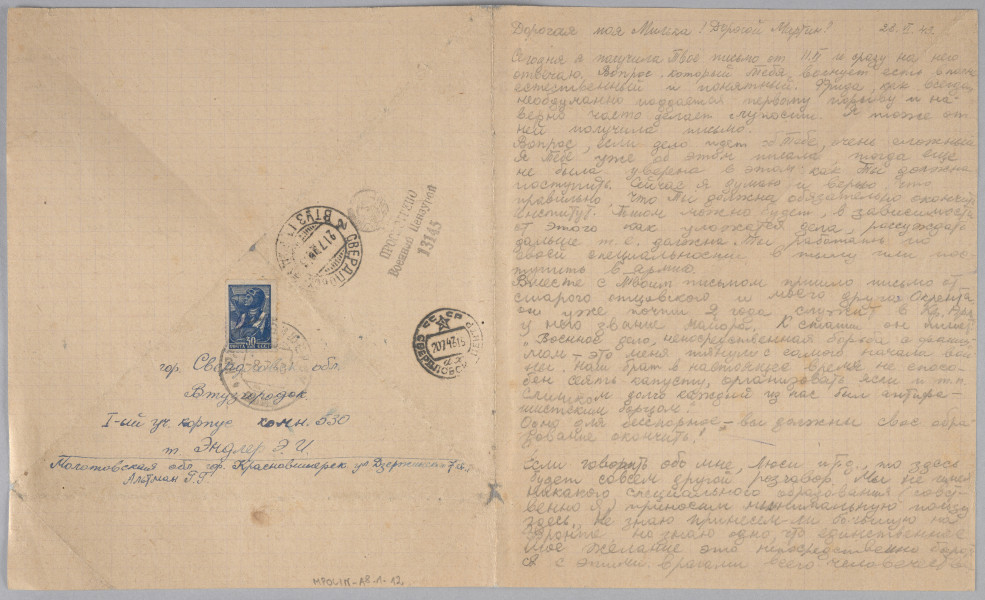 гор. Свердловск обл.
Втузгородок.
I-ый уч. корпус комн. 530
т. Эндлер Э. И.
Молотовская обл. гор. Красновишерск ул Дзержинского
Альтман Г. Г
ПРОСМОТРЕНО
Военной Цензурой
13145
СССР
СВЕРДЛОВСК
20743
30
MPOLIN-A8-1-12
Дорогая моя Милка! Дорогой Мартин! 28. 43
Сегодня я получила Твоё письмо от и сразу на него
отвечаю. Вопрос, который Тебя волнует есть
естественный и понятный. Фрида, как всегда,
необдуманно поддается первому порыву и на-
верно часто делает глупости. Я тоже от
ней получила письмо.
Вопрос, если дело идет о Тебе, очень сложный
Я Тебе уже об этом писала, тогда еще
не была уверена в этом как Ты должна
поступить. Сейчас я думаю и верю что
правильно, что Ты должна обязательно окончить
институт. Потом можно будет, в зависимости
от этого как уложатся дела, рассуждать
дальше т. е. должна Ты работать по
своей специальности в тылу или пос-
тупить в армию.
Вместе с Твоим письмом пришло письмо от
старого отцовского и моего друга
он уже почти 2 года служит в Кр. Ар.
у него звание майора. Кстати он пишет
"Военное дело, непосредственная борьба с
- это меня тянули с самого начала вой
ны. Наш брат в настоящее время не спосо-
бен сеять капусту, организовать ясли и т. п.
Слишком долго каждый из нас был антифа-
шистским борцом."
Одно для бесспорное - вы должны свое обра-
зование окончить!
Если говорить обо мне, Люси и др., то здесь
будет совсем другой разговор. Мы не имеем
никакого специального образования
приносим минимальную пользу
здесь. Не знаю принесем-ли большую на
фронте но знаю одно, что единственное
мое желание это непосредственно борот
ся с этими врагами всего человечества